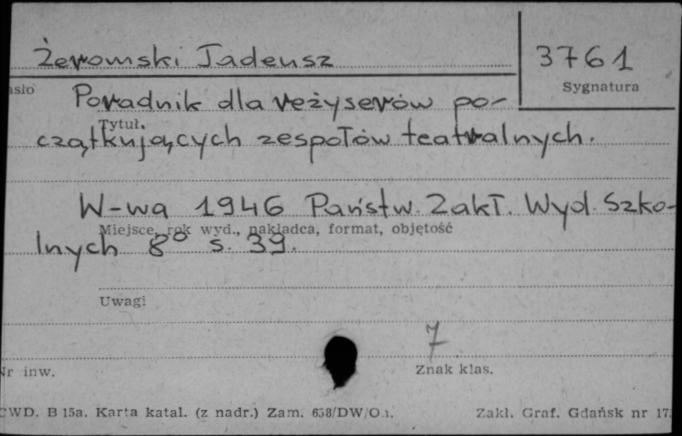 Żeromski Tadeusz
3761
Sygnatura
Poradnik dla reżyserów po-
Tytuł
czątkujących zespołów teatralnych.
W-wa 1946 Państw. Zakł. Wyd. Szko-
Miejsce, rok wyd., nakładca, format, objętość
lnych 8° s. 39.
Uwagi
7
Nr inw.
Znak klas.
CWD. B 15a. Karta katal. (z nadr.) Zam. 658/DW/O
Zakł. Graf. Gdańsk nr